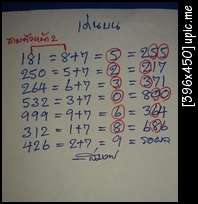 เด่นบน
181 = 8+7 = 5 = 255
250 = 5+7 = 2 = 217
264 = 6+7 = 3 = 371
532 = 3+7 = 0 = 800
999 = 9+7 = 6 = 364
312 = 1+7 = 8 = 686
426 = 2+7 = 9 = รอผล
[396x450] upic.me